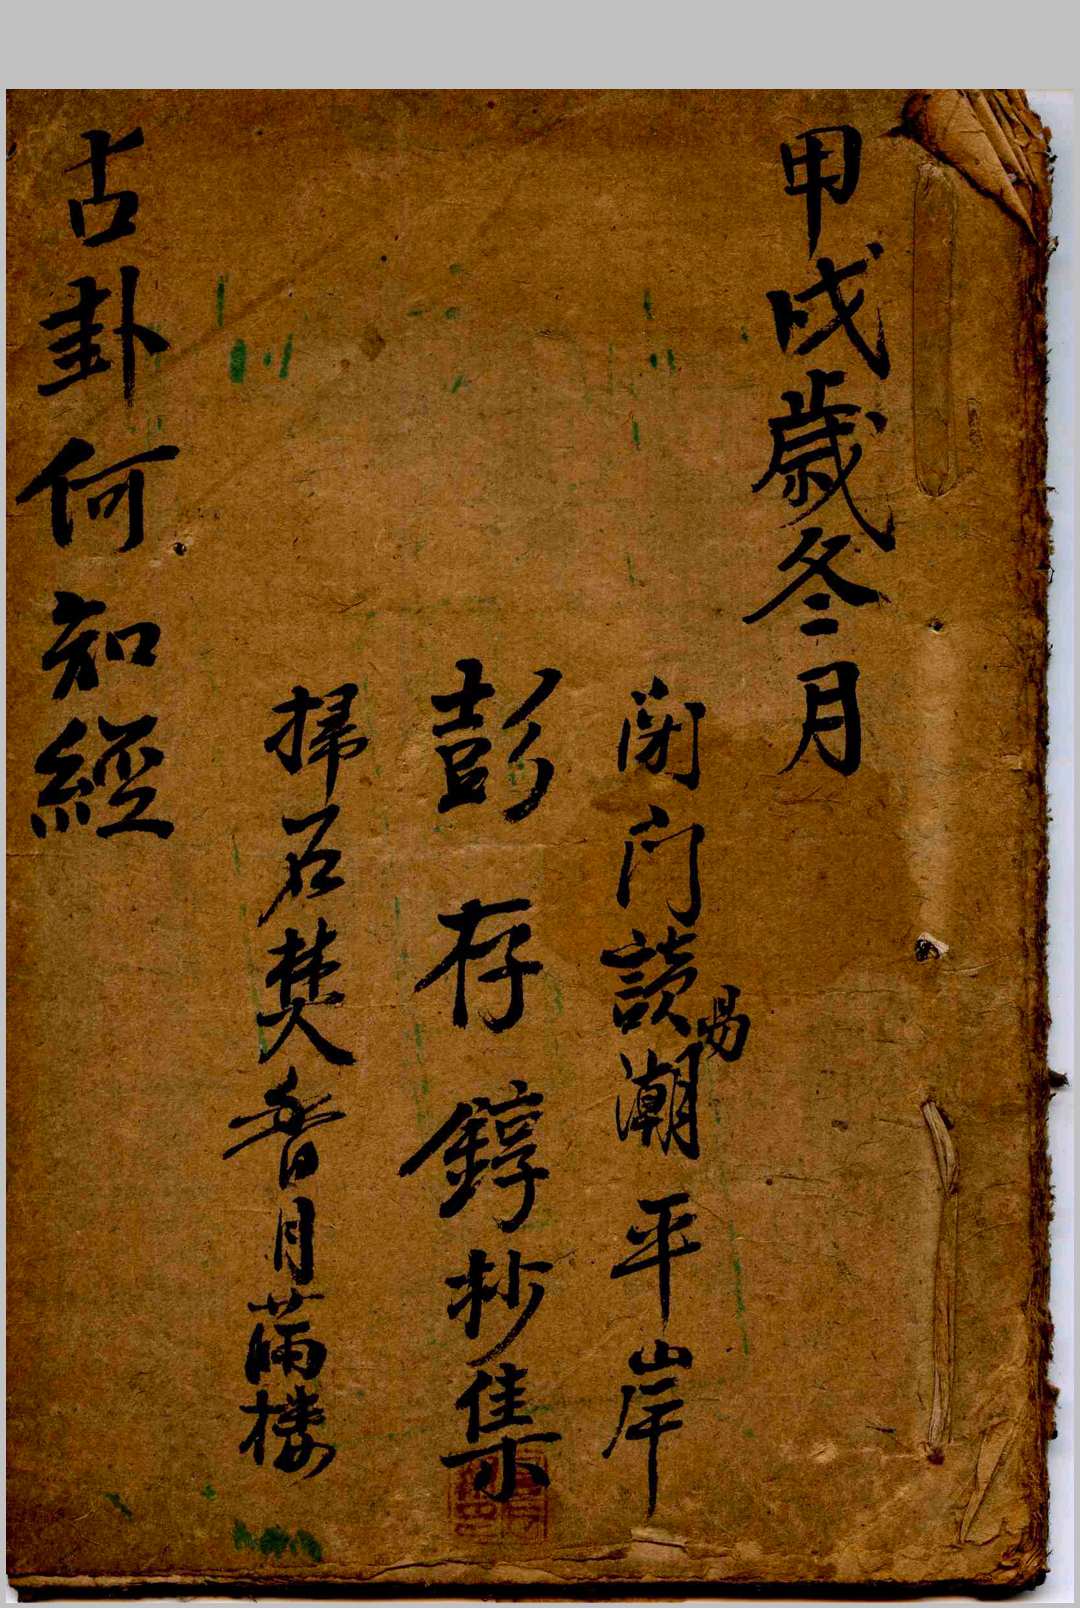 甲戌歲冬月
閉門讀易潮平岸
彭存錞抄集
掃石焚香月滿樓
占卦何知經